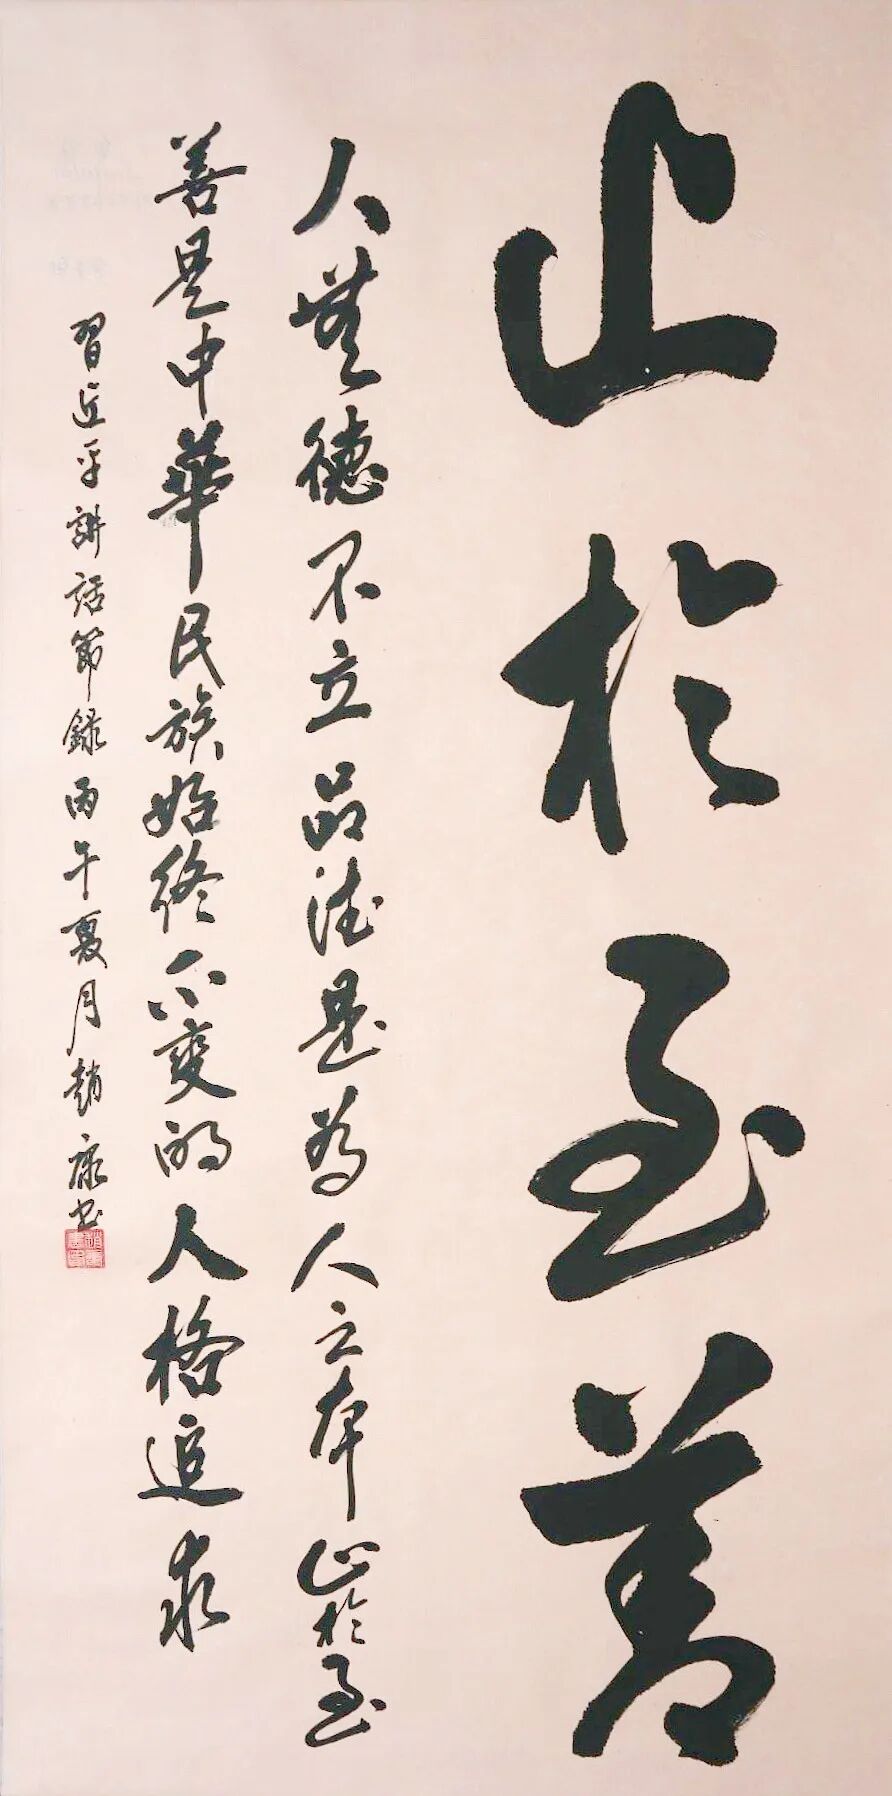 止於至善
人無德不立品德是為人之本止於至
善是中華民族始終不變的人格追求
習近平講話節録丙午夏月趙康书